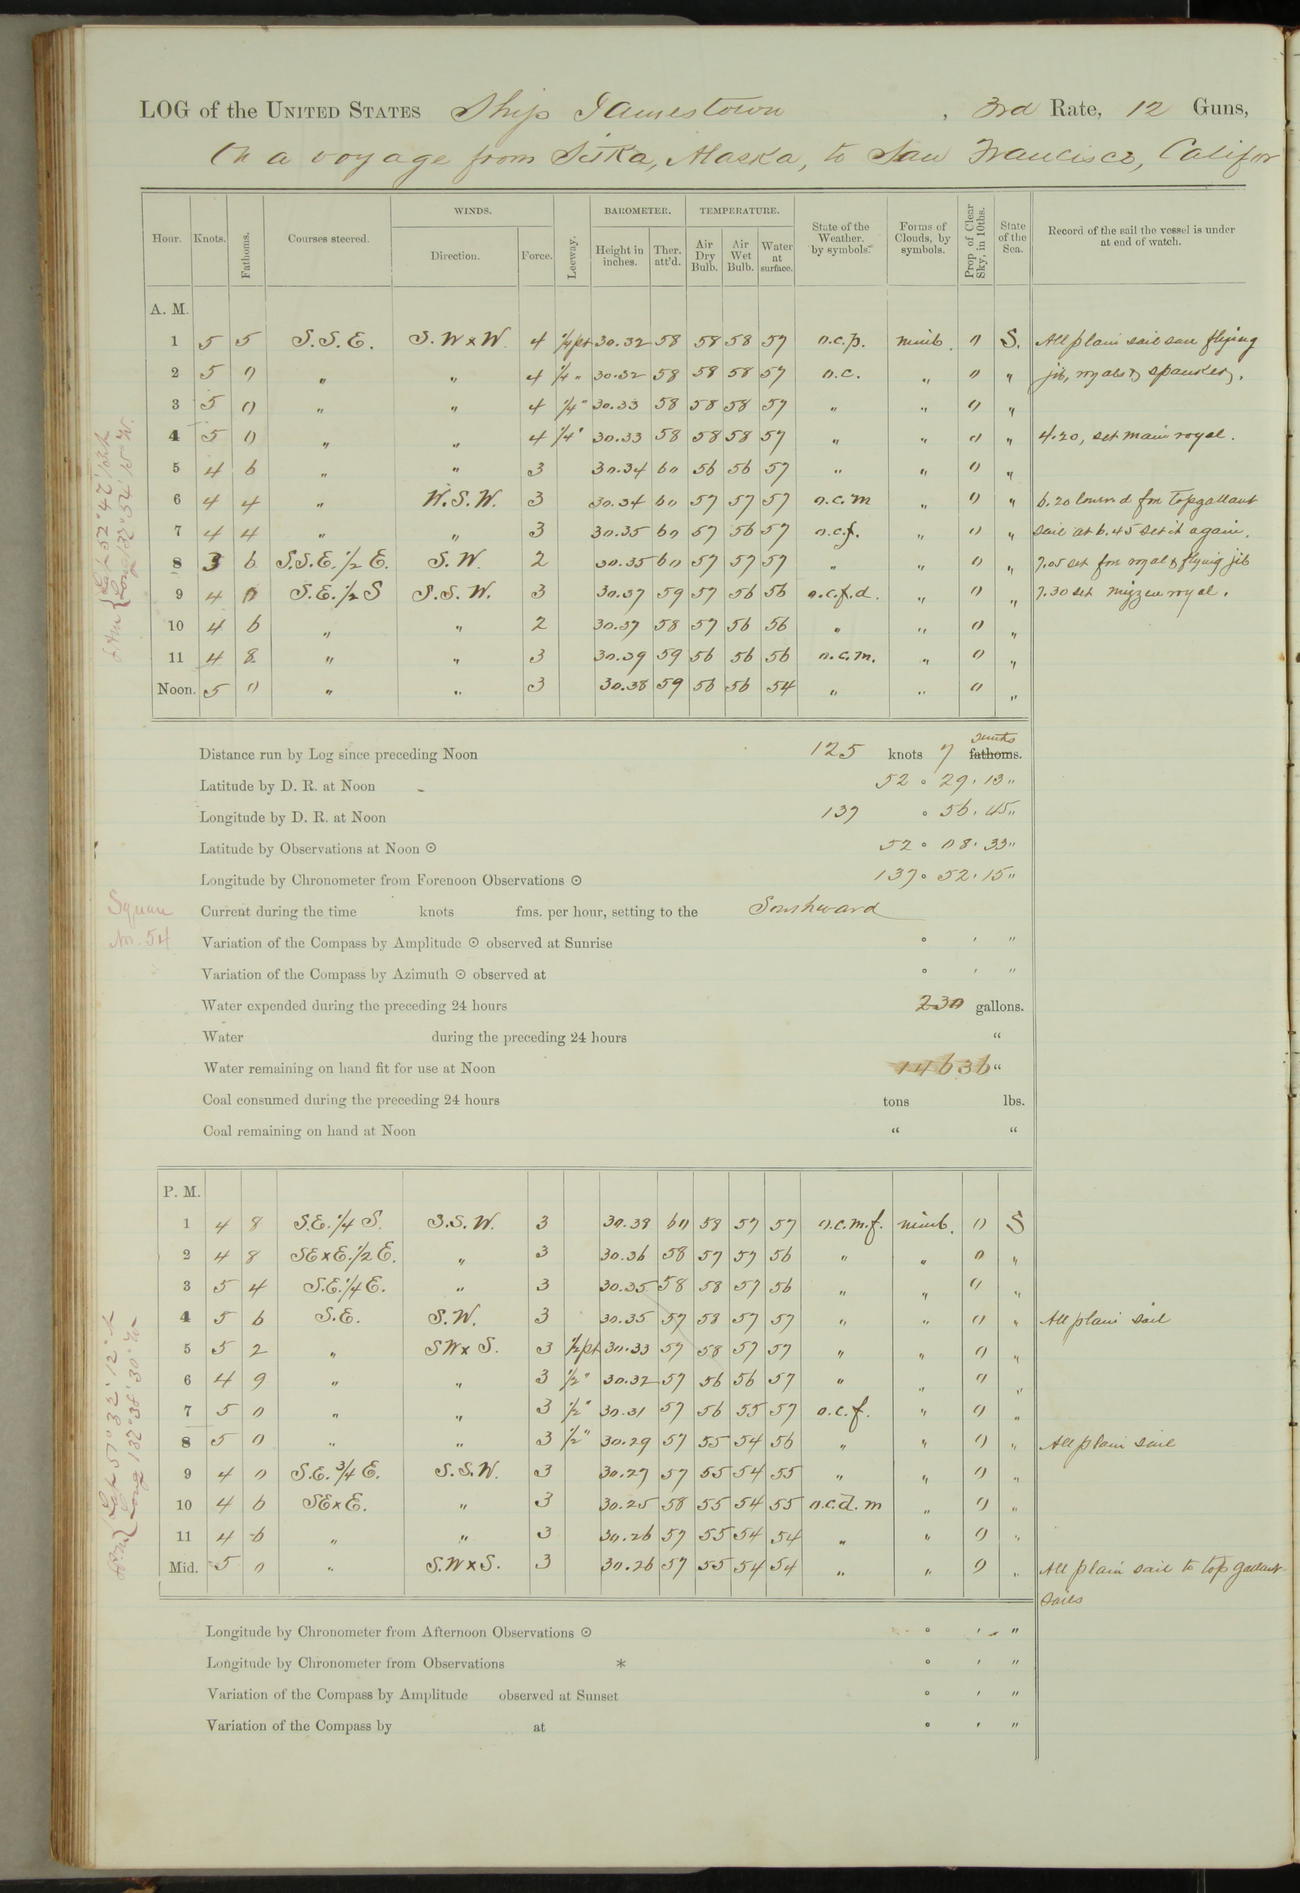 LOG of the UNITED STATES Ship Jamestown , 3rd Rate, 12 Guns,
On a voyage from Sitka, Alaska, to San Francisco, Califor
WINDS. BAROMETER. TEMPERATURE.
Hour. Knots. Fathoms. Courses steered. Direction. Force. Leeway. Height in inches. Ther. att'd. Air Dry Bulb. Air Wet Bulb. Water at surface. State of the Weather. by symbols. Forms of Clouds, by symbols. Prop. of Clear Sky, in 10ths. State of the Sea. Record of the sail the vessel is under at end of watch.
A. M.
1 5 5 S.S.E. S.W x W. 4 1/4 pt 30.32 58 58 58 57 o.c.p. nimb. 0 S. All plain sail save flying
2 5 0 " " 4 1/4 " 30.32 58 58 58 57 o.c. " 0 " jib, royals & spanker.
3 5 0 " " 4 1/4 " 30.33 58 58 58 57 " " 0 "
4 5 0 " " 4 1/4 " 30.33 58 58 58 57 " " 0 " 4.20, set main royal.
5 4 6 " " 3 30.34 60 56 56 57 " " 0 "
6 4 4 " W.S.W. 3 30.34 60 57 57 57 o.c.m " 0 " 6.20 lowered fore topgallant
7 4 4 " " 3 30.35 60 57 56 57 o.c.f. " 0 " sail at 6.45 set it again.
8 3 6 S.S.E. 1/2 E. S.W. 2 30.35 60 57 57 57 " " 0 " 7.05 set fore royal & flying jib
9 4 0 S.E. 1/2 S S.S.W. 3 30.37 59 57 56 56 o.c.f.d. " 0 " 7.30 set mizzen royal.
10 4 6 " " 2 30.37 58 57 56 56 " " 0 "
11 4 8 " " 3 30.39 59 56 56 56 o.c.m. " 0 "
Noon. 5 0 " " 3 30.38 59 56 56 54 " " 0 "
Distance run by Log since preceding Noon 125 knots 7 tenths fathoms.
Latitude by D. R. at Noon 52 ° 29 ' 13 "
Longitude by D. R. at Noon 137 ° 56 ' 45 "
Latitude by Observations at Noon ⊙ 52 ° 08 ' 33 "
Longitude by Chronometer from Forenoon Observations ⊙ 137 ° 52 ' 15 "
Current during the time knots fms. per hour, setting to the Southward
Square
No. 54
Variation of the Compass by Amplitude ⊙ observed at Sunrise ° ' "
Variation of the Compass by Azimuth ⊙ observed at ° ' "
Water expended during the preceding 24 hours 230 gallons.
Water during the preceding 24 hours "
Water remaining on hand fit for use at Noon 14636 "
Coal consumed during the preceding 24 hours tons lbs.
Coal remaining on hand at Noon " "
P. M.
1 4 8 S.E. 1/4 S. S.S.W. 3 30.38 60 58 57 57 o.c.m.f. nimb. 0 S
2 4 8 SE x E. 1/2 E. " 3 30.36 58 57 57 56 " " 0 "
3 5 4 S.E. 1/4 E. " 3 30.35 58 58 57 56 " " 0 "
4 5 6 S.E. S.W. 3 30.35 57 58 57 57 " " 0 " All plain sail
5 5 2 " SW x S. 3 1/2 pt 30.33 57 58 57 57 " " 0 "
6 4 9 " " 3 1/2 " 30.32 57 56 56 57 " " 0 "
7 5 0 " " 3 1/2 " 30.31 57 56 55 57 o.c.f. " 0 "
8 5 0 " " 3 1/2 " 30.29 57 55 54 56 " " 0 " All plain sail
9 4 0 S.E. 3/4 E. S.S.W. 3 30.27 57 55 54 55 " " 0 "
10 4 6 SE x E. " 3 30.25 58 55 54 55 o.c.d.m " 0 "
11 4 6 " " 3 30.26 57 55 54 54 " " 0 "
Mid. 5 0 " S.W x S. 3 30.26 57 55 54 54 " " 0 " All plain sail to top gallant
sails
Longitude by Chronometer from Afternoon Observations ⊙ ° ' "
Longitude by Chronometer from Observations * ° ' "
Variation of the Compass by Amplitude observed at Sunset ° ' "
Variation of the Compass by at ° ' "